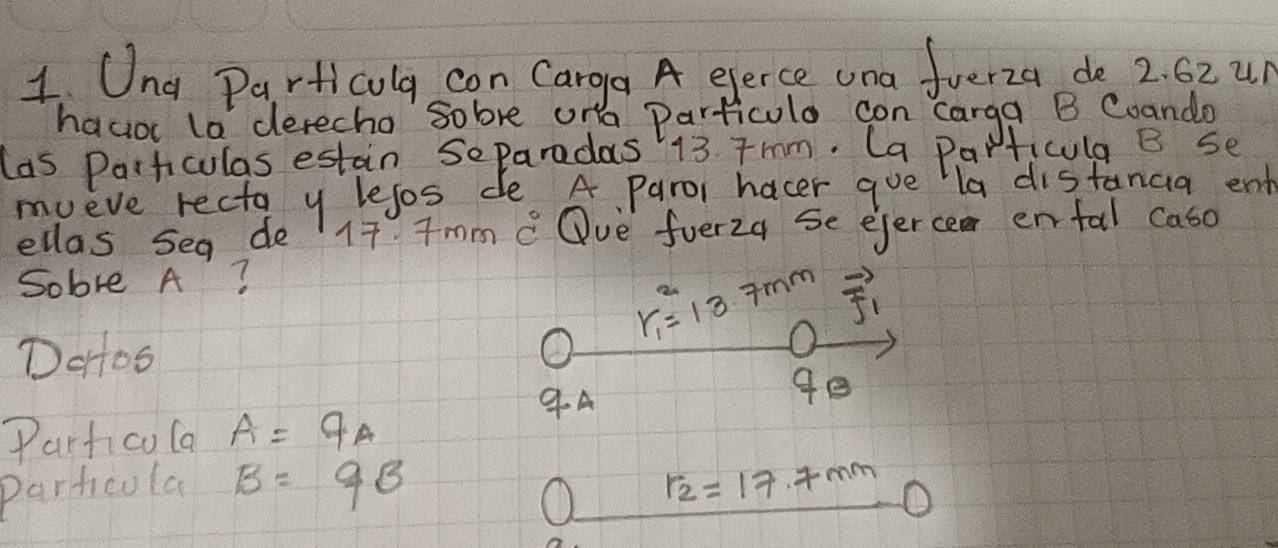 1. Una Particula con Carga A ejerce una fuerza de 2.62 uN
hacia la derecha Sobre una Particula con carga B Cuando
las Particulas están Separadas 13.7mm. La Particula B se
mueve recta y lejos de A Para hacer que la distancia ent
ellas Sea de 17.7mm ¿ Què fuerza Se ejerce en tal caso
Sobre A ?
Datos
r₁ = 13.7mm F₁
qA qB
Particula A = qA
Particula B = qB
r₂ = 17.7mm